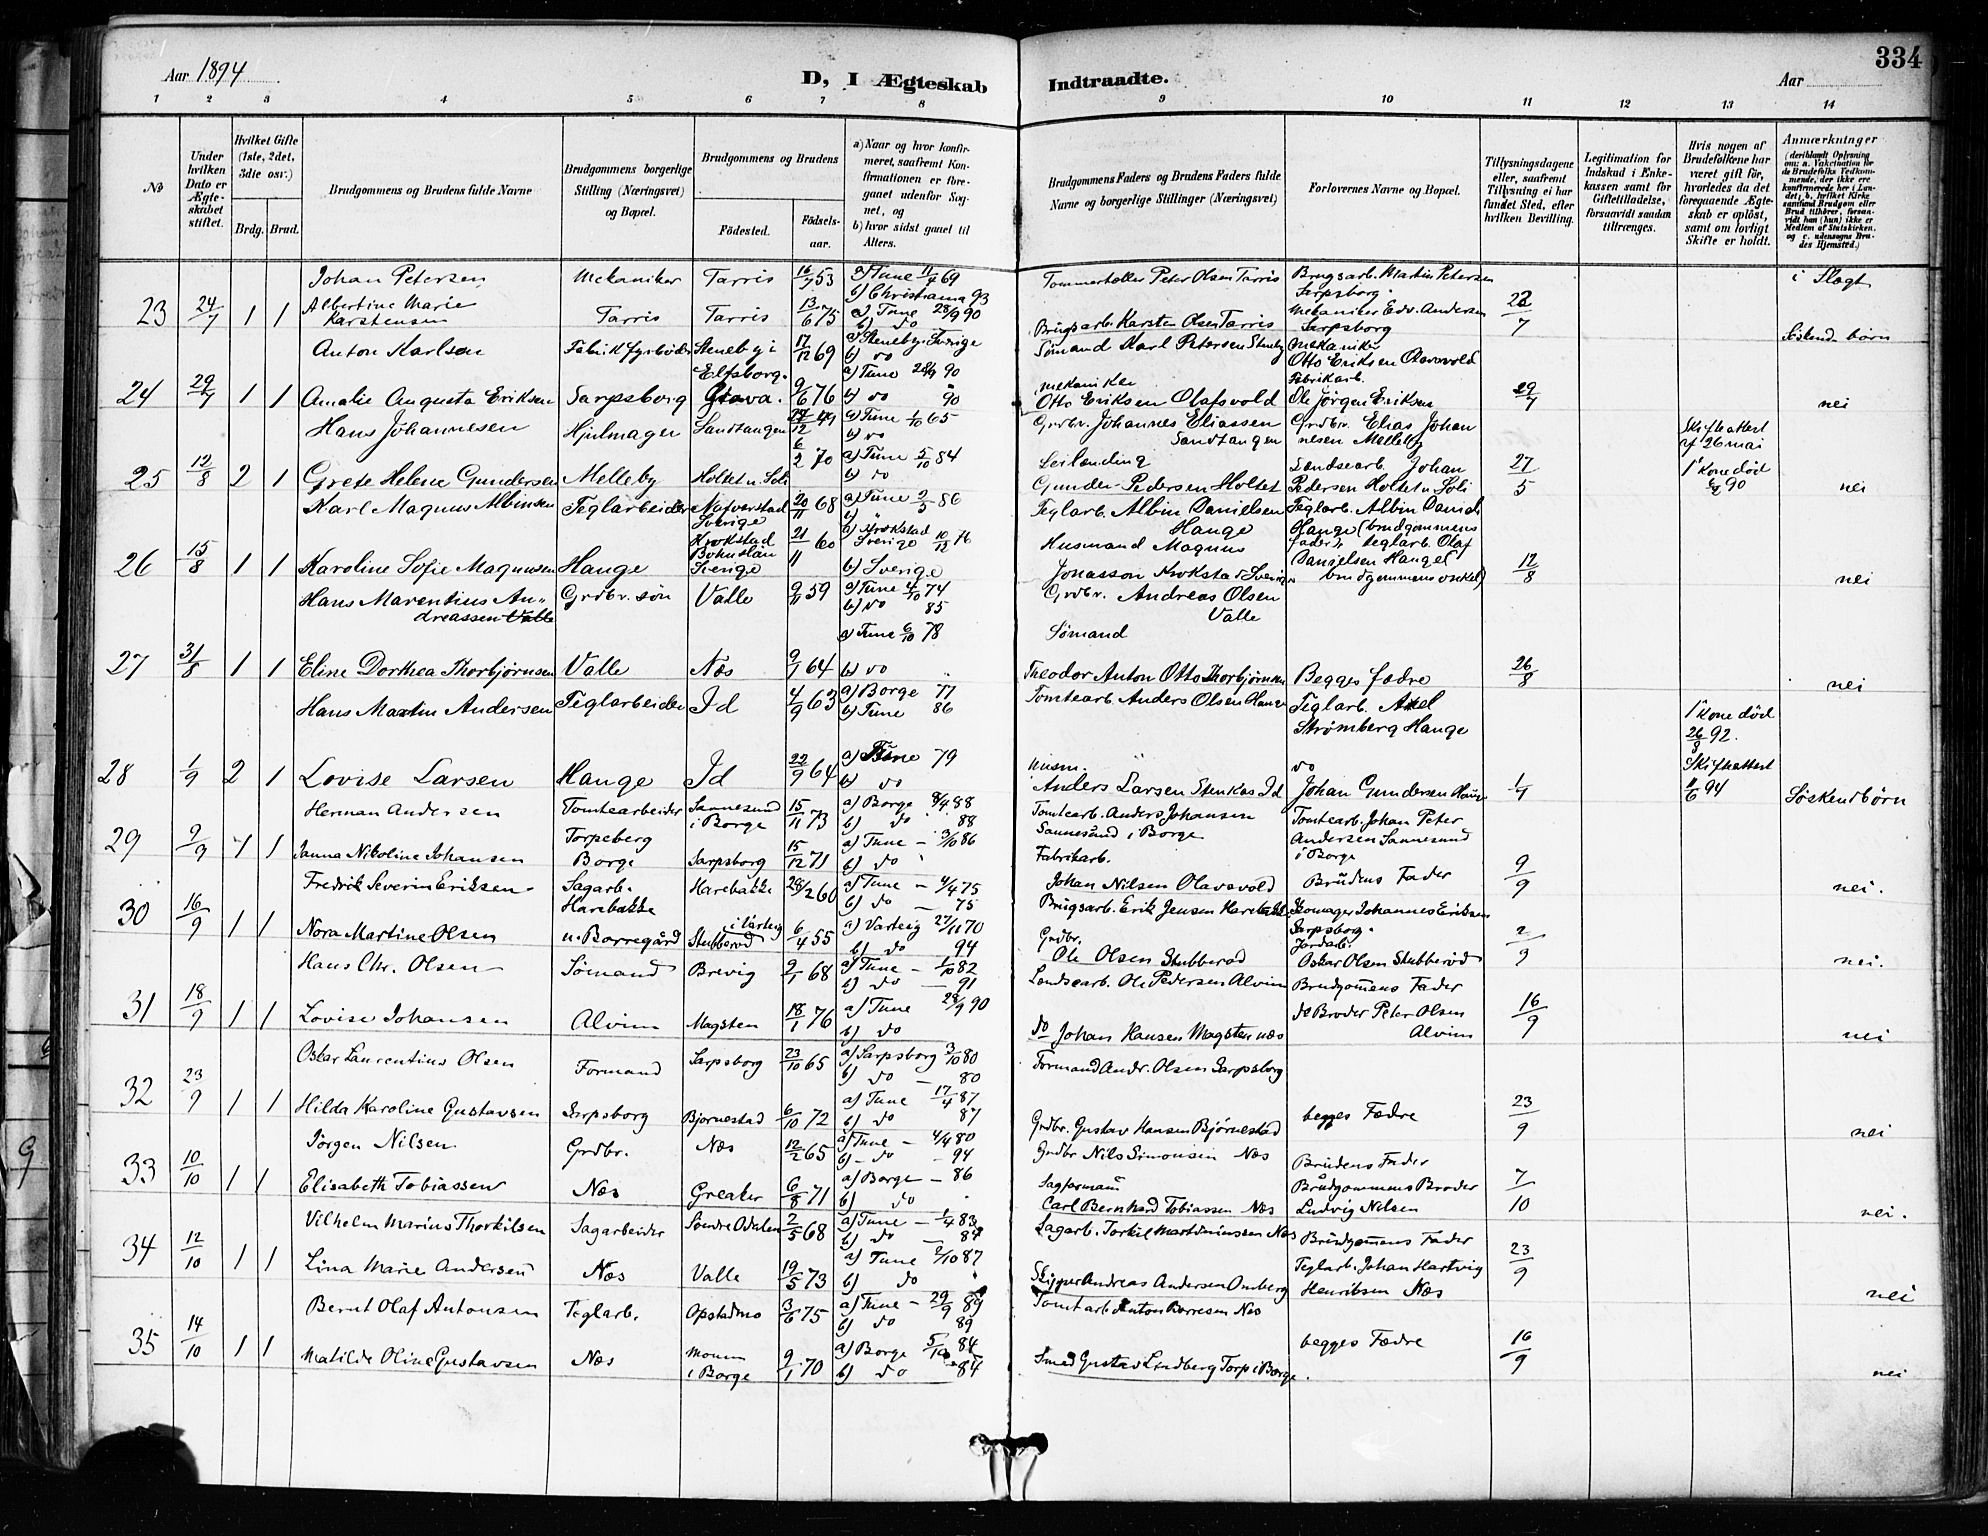 334
Aar 1894
D, I Ægteskab Indtraadte.
Aar
1 2 3 4 5 6 7 8 9 10 11 12 13 14
№
Under hvilken Dato er Ægteskabet stiftet.
Hvilket Gifte (1ste, 2det, 3die osv.)
Brdg. Brud.
Brudgommens og Brudens fulde Navne
Brudgommens borgerlige Stilling (Næringsvei) og Bopæl.
Brudgommens og Brudens
Fødested.
Fødselsaar.
a) Naar og hvor konfirmeret, saafremt Konfirmationen er foregaaet udenfor Sognet, og
b) hvor sidst gaaet til Alters.
Brudgommens Faders og Brudens Faders fulde Navne og borgerlige Stillinger (Næringsvei)
Forlovernes Navne og Bopæl.
Tillysningsdagene eller, saafremt Tillysning ei har fundet Sted, efter hvilken Bevilling.
Legitimation for Indskud i Enkekassen samt for Giftetilladelse, forsaavidt saadan tiltrænges.
Hvis nogen af Brudefolkene har været gift før, hvorledes da det foregaaende Ægteskab er opløst, samt om lovligt Skifte er holdt.
Anmærkninger
Johan Petersen Mekaniker Tarris 16/7 53 a) Tune 11/4 69 Tommertæller Peter Olsen Tarris Brugsarb. Martin Petersen i Slægt
b) Christiania 93 Sarpsborg.
23 24/7 1 1 Albertine Marie Karstensen Tarris Tarris 13/6 75 a) Tune 28/9 90 Brugsarb. Karsten Olsen Tarris Mekaniker Edv. Andersen Sarpsborg 22/7 Søskendebørn
b) do
Anton Karlsen Fabrikfyrbøder Steneby i Elfsborg. 17/12 69 a) Steneby Sverige Sømand Karl Petersen Mekaniker Otto Eriksen Olavsvold
b) do
24 29/7 1 1 Amalie Augusta Eriksen Sarpsborg Glava. 9/6 76 a) Tune 28/9 90 Mekaniker Otto Eriksen Olafsvold Fabrikarb. Ole Jørgen Eriksen 29/7 nei
b) do 90
Hans Johannesen Hjulmager Sandtangen 49 a) Tune 1/10 65 Grdbr. Johannes Eliassen Sandtangen Grdbr. Elias Johannesen Melleby Skifteattest af 26 mai
b) do
25 12/8 2 1 Grete Helene Gundersen Melleby Holtet u. Soli 6/2 70 a) Tune 5/10 84 Leilending Gunder Pedersen Holtet Landsearb. Johan Pedersen Holtet u. Soli 27/5 1' Kone død 90 nei
b) do
Karl Magnus Albinsen Teglarbeider Nafverstad Sverige 20/11 68 a) Tune 2/5 86 Teglarb. Albin Danielsen Hauge Teglarb. Albin Daniels Hauge (brudgommens fader),
26 15/8 1 1 Karoline Sofie Magnusen Hauge Krokstad Bohuslän Sverige 21/11 60 a) Krokstad Sverige 10/12 76 Husmand Magnus Jonasson Krokstad Sverige Teglarb. Olaf Danielsen Hauge (brudgommens onkel) 12/8 nei
b) Sverige
Hans Marentius Andreassen Grdbr. søn Valle 9/11 59 a) Tune 4/10 74 Grdbr. Andreas Olsen Valle
b) do 85
27 31/8 1 1 Eline Dorthea Thorbjørnsen Valle Næs 9/1 64 a) Tune 6/10 78 Sømand Theodor Anton Otto Thorbjørnsen Begges fædre 26/8 nei
b) do
Hans Martin Andersen Teglarbeider Id 4/9 63 a) Borge 77 Tomtearb. Anders Olsen Hauge Teglarb. Axel Strømberg Hauge 1' Kone død 26/8 92.
b) Tune 86
28 1/9 2 1 Lovise Larsen Hauge Id 22/9 64 a) Tune 79 Husm. Anders Larsen Stenkas Id do Johan Gundersen Hauge 1/9 Skifteattest 11/6 94 Søskendbørn
b) do
Herman Andersen Tomtearbeider Sannesund i Borge 15/11 73 a) Borge 8/4 88 Tomtearb. Anders Johansen Sannesund i Borge Tomtearb. Johan Peter Andersen Sannesund i Borge
b) do 88
29 9/9 1 1 Janna Nikoline Johansen Torpeberg Borge Sarpsborg 15/12 71 a) Tune – 3/10 86 Fabrikarb. Johan Nilsen Olavsvold Brudens Fader 9/9 nei.
b) do
Fredrik Severin Eriksen Sagarb. Harebakke 28/2 60 a) Tune – 4/4 75 Brugsarb. Erik Jensen Harebakke Skomager Johannes Eriksen Sarpsborg.
b) do — 75
30 16/9 1 1 Nora Martine Olsen Harebakke u. Borregård Stubberød i Varteig 6/4 55 a) Varteig 27/11 70 Grdbr. Ole Olsen Stubberød Jordarb. Oskar Olsen Stubberød 2/9 nei.
b) do 94
Hans Chr. Olsen Sømand Brevig 9/1 68 a) Tune – 1/10 82 Landsearb. Ole Pedersen Alvim Brudgomens Fader
b) do — 91
31 18/9 1 1 Lovise Johansen Alvim Magsten 18/1 76 a) Tune 28/9 90 do Johan Hansen Magsten næs do Broder Peter Olsen Alvim 16/9 nei
b) do
Oskar Laurentius Olsen Formand Sarpsborg 23/10 65 a) Sarpsborg 3/10 80 Formand Andr. Olsen Sarpsborg
b) do — 80
32 23/9 1 1 Hilda Karoline Gustavsen Sarpsborg Bjørnestad 6/10 72 a) Tune 17/4 87 Grdbr. Gustav Hansen Bjørnestad begges Fædre 23/9 nei
b) do 87
Jørgen Nilsen Grdbr. Næs 12/2 65 a) Tune – 4/4 80 Grdbr Nils Simonsen Næs Brudens Fader
b) – do – 94
33 10/10 1 1 Elisabeth Tobiassen Næs Greaker 6/8 71 a) Borge – 86 Sagformann Carl Bernhard Tobiassen Næs Brudgommens Broder Ludvig Nilsen 7/10 nei.
b) do
Vilhelm Marius Thorkilsen Sagarbeider Søndre Odalen 2/5 68 a) Tune – 1/4 83 Sagarb. Torkil Martiniussen Næs Brudgomens Fader
b) do – 84
34 12/10 1 1 Lina Marie Andersen Næs Valle 19/5 73 a) Tune 2/10 87 Skipper Andreas Andersen Omberg Teglarb. Johan Hartvig Henriksen Næs 23/9 nei
b) do
Bernt Olaf Antonsen Teglarb. Opstadmo 3/6 75 a) Tune – 29/9 89 Tomtarb Anton Borresen Næs
b) do 89
35 14/10 1 1 Matilde Oline Gustavsen Næs Moum i Borge 9/1 70 a) Borge 5/10 84 Smed Gustav Lindberg Torp i Borge. begges Fædre 16/9 nei
b) do – 84